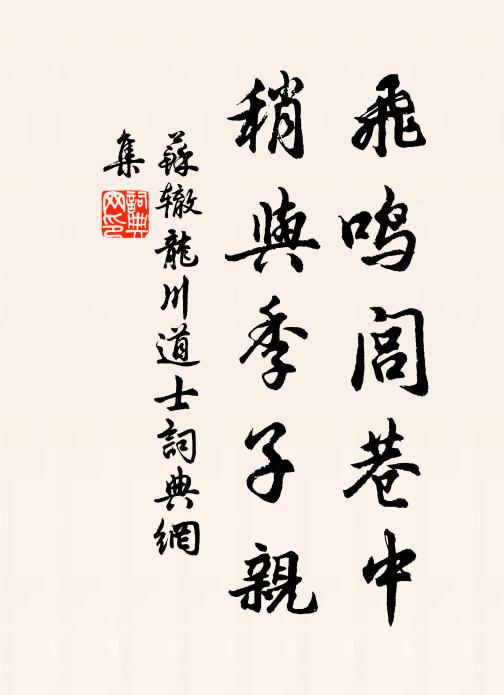 飛鸣闾巷中
稍與季子親
蘇辙龍川道士詞典網
集
詞典
网印